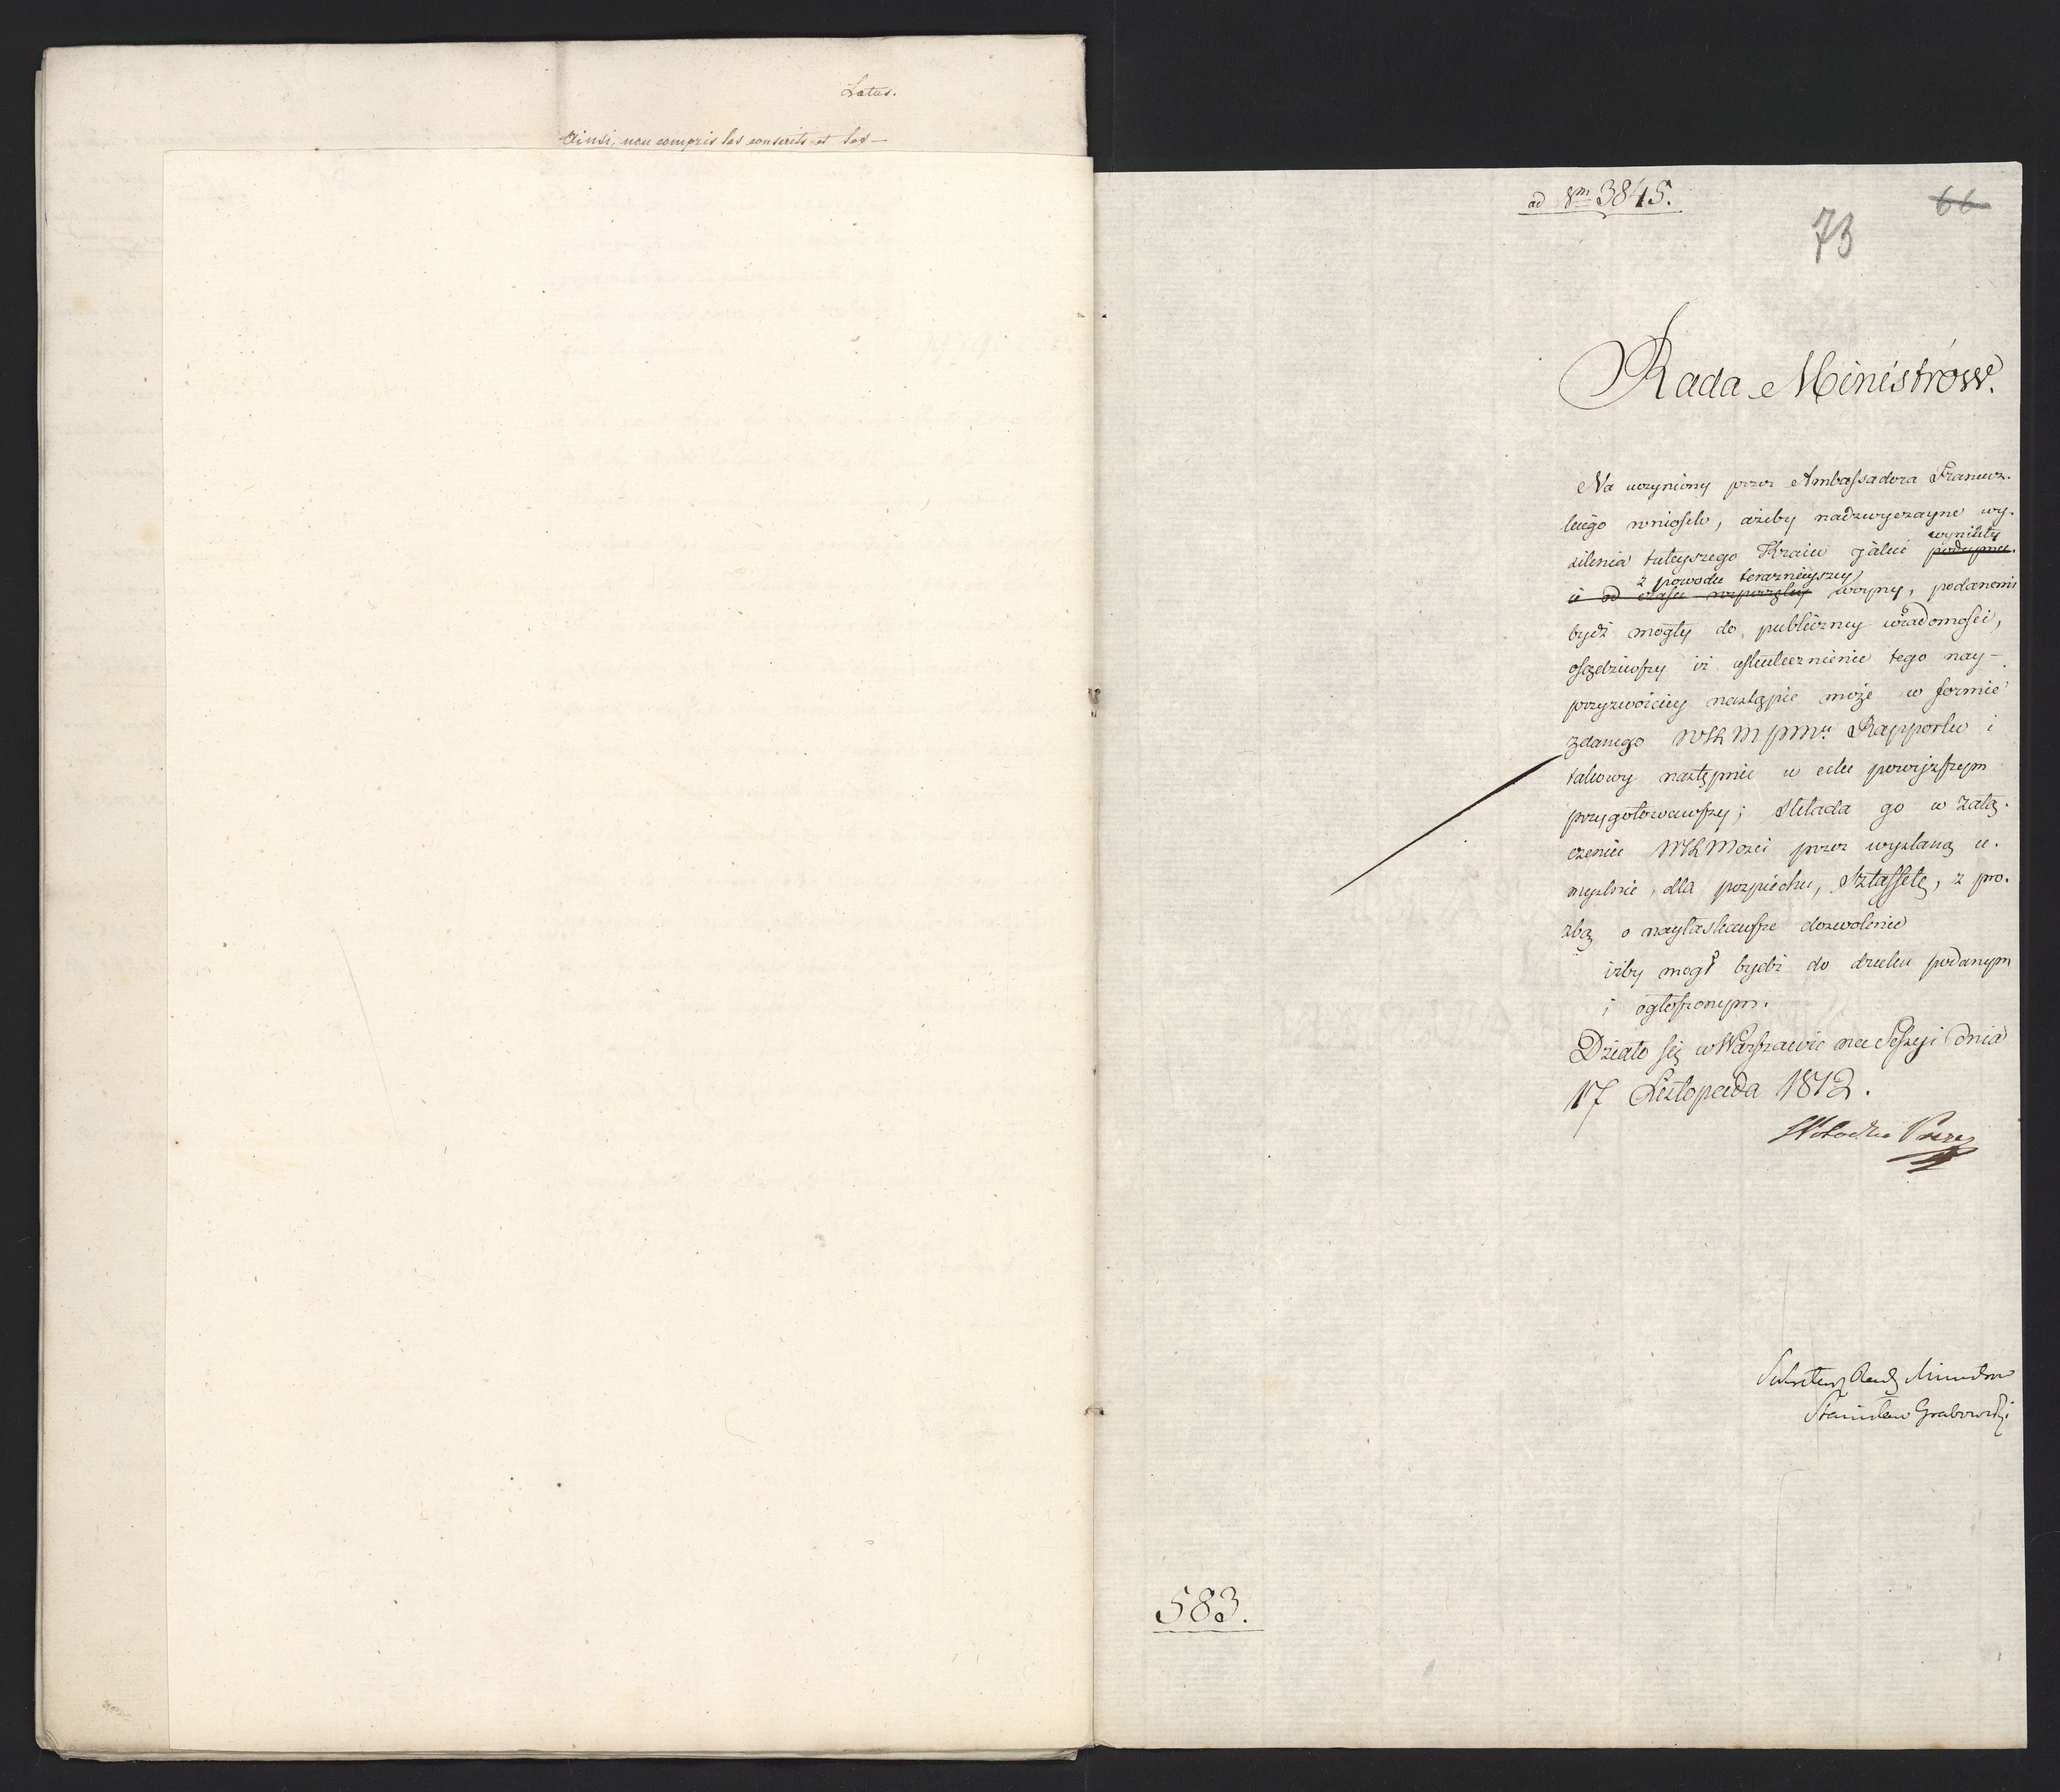 Latus.
Ainsi, non compris les conscrits et les —
ad Num 3845.
66
73
Rada Ministrów.
Na uczyniony przez Ambassadora Francuz-
kiego wniosek, ażeby nadzwyczayne wy-
silenia tuteyszego Kraiu jakie wynikły
z powodu teraznieyszey woyny, podanemi
bydź mogły do publiczney wiadomości,
osądziwszy iż uskutecznienie tego nay-
przyzwoiciey nastąpić może w formie
zdanego WKMPMu Rapportu i
takowy następnie w celu powyższym
przygotowawszy; składa go w załą-
czeniu WKMości przez wysłaną u-
myślnie, dla pospiechu, Sztaffetę, z pro-
zbą o nayłaskawsze dozwolenie
iżby mógł bydź do druku podanym
i ogłoszonym.
Działo się w Warszawie na Sessyi dnia
17 Listopada 1812.
Sekretarz Rady Ministrów
Stanisław Grabowski
583.